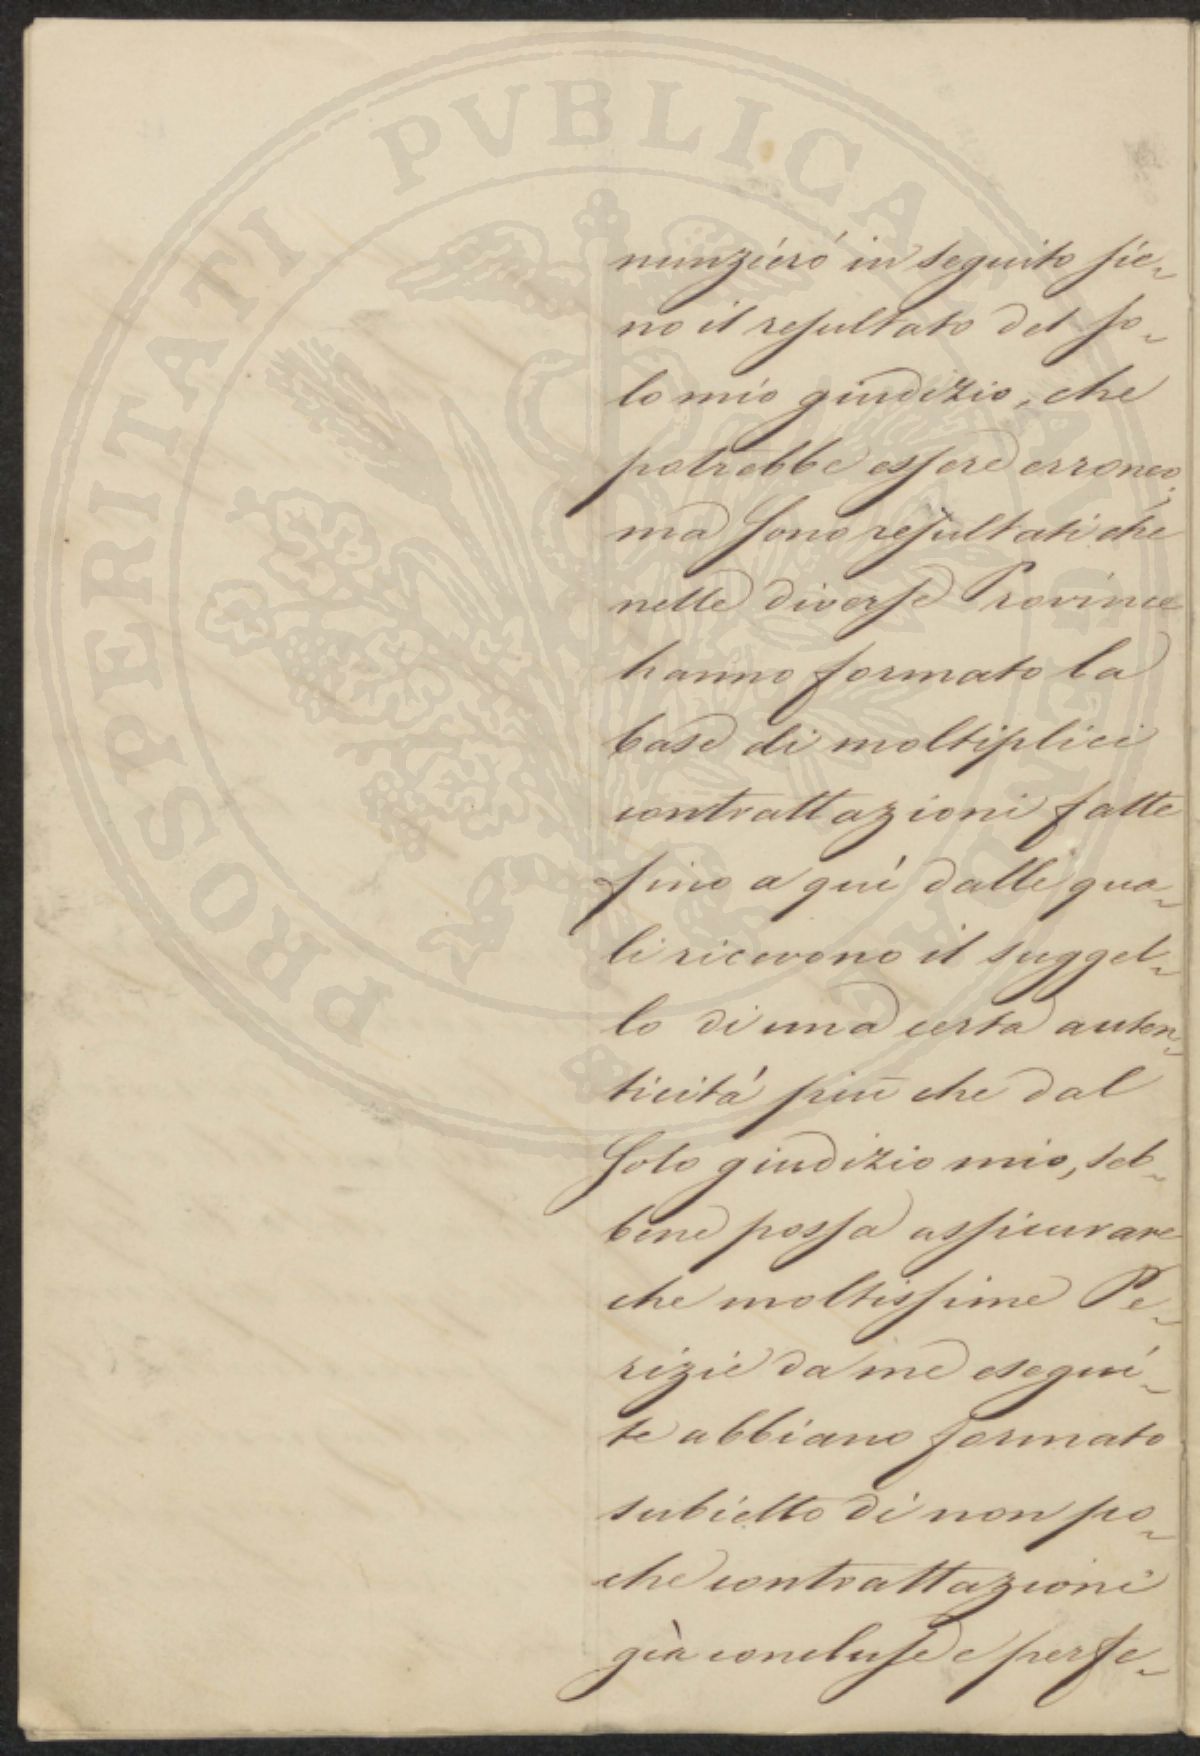 PROSPERITATI PVBLICAE AVGENDAE
nunzieró in seguito sie-
no il resultato del so-
lo mio giudizio, che
potrebbe essere erroneo;
ma sono resultati che
nelle diverse Provincie
hanno formato la
base di moltiplici
contrattazioni fatte
fino a quì dalle qua-
li ricevono il suggel-
lo di una certa auten-
ticitá più che dal
solo giudizio mio, seb-
bene possa assicurare
che moltissime Pe-
rizie da me esegui-
te abbiano formato
subietto di non po-
che contrattazioni
già concluse e perfe-